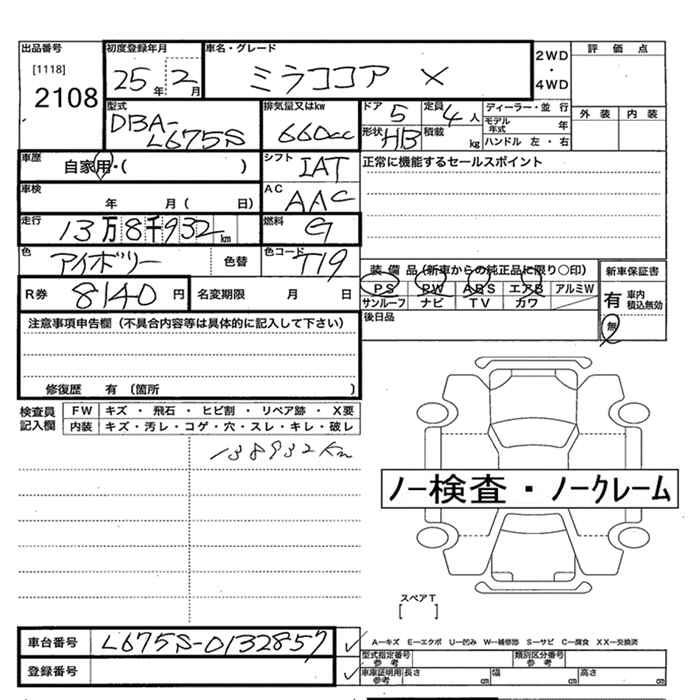 出品番号 初度登録年月 車名・グレード 2WD・4WD 評価点
[1118] 2108 25年 2月 ミラココア X
型式 排気量又はkw ドア 5 定員 4人 ディーラー・並行 外装 内装
DBA-L675S 660cc 形状 HB 積載 kg モデル年式 年
ハンドル 左・右
車歴 自家用・( ) シフト IAT 正常に機能するセールスポイント
車検 年 月 ( 日) AC AAC
走行 13万8千932km 燃料 G
色 アイボリー 色替 色コード T19
装備品(新車からの純正品に限り○印) 新車保証書
PS PW ABS エアB アルミW 有 車内積込無効
サンルーフ ナビ TV カワ 無
R券 8140円 名変期限 月 日 後日品
注意事項申告欄(不具合内容等は具体的に記入して下さい)
修復歴 有 (箇所 )
検査員記入欄 FW キズ・飛石・ヒビ割・リペア跡・X要
内装 キズ・汚レ・コゲ・穴・スレ・キレ・破レ
138932km
ノー検査・ノークレーム
スペアT
[ ]
車台番号 L675S-0132857
A—キズ E—エクボ U—凹み W—補修跡 S—サビ C—腐食 XX—交換済
型式指定番号 参考 類別区分番号 参考
登録番号 車庫証明用 参考 長さ cm 幅 cm 高さ cm